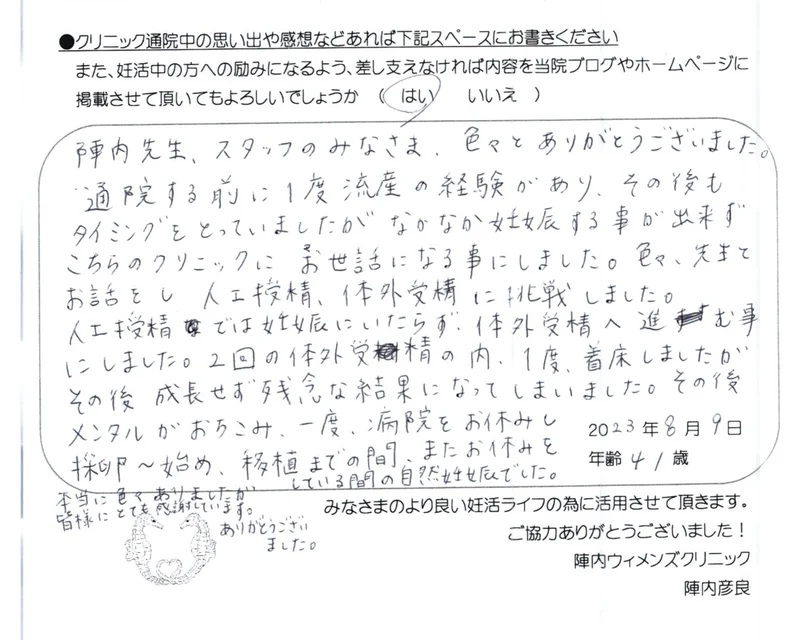 ●クリニック通院中の思い出や感想などあれば下記スペースにお書きください
また、妊活中の方への励みになるよう、差し支えなければ内容を当院ブログやホームページに
掲載させて頂いてもよろしいでしょうか （ はい いいえ ）
陣内先生、スタッフのみなさま、色々とありがとうございました。
通院する前に1度流産の経験があり、その後も
タイミングをとっていましたがなかなか妊娠する事が出来ず
こちらのクリニックに お世話になる事にしました。色々、先生と
お話をし 人工授精、体外受精に挑戦しました。
人工授精では妊娠にいたらず、体外受精へ進む事
にしました。2回の体外受精の内、1度、着床しましたが
その後 成長せず残念な結果になってしまいました。その後
メンタルがおちこみ、一度、病院をお休みし
採卵〜始め、移植までの間、またお休みを
している間の自然妊娠でした。
2023年8月9日
年齢41歳
本当に色々ありましたが
皆様にとても感謝しています。
ありがとうござい
ました。
みなさまのより良い妊活ライフの為に活用させて頂きます。
ご協力ありがとうございました！
陣内ウィメンズクリニック
陣内彦良